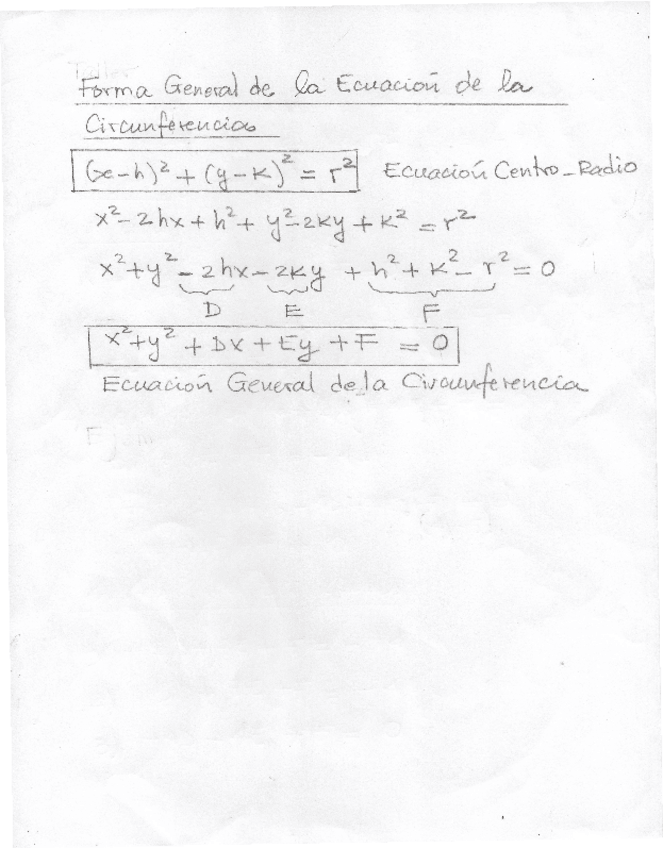 Taller
Forma General de la Ecuación de la
Circunferencia
(x-h)² + (y-k)² = r² Ecuación Centro-Radio
x²-2hx+h²+y²-2ky+k² = r²
x²+y²-2hx-2ky+h²+k²-r² = 0
D E F
x²+y²+Dx+Ey+F = 0
Ecuación General de la Circunferencia